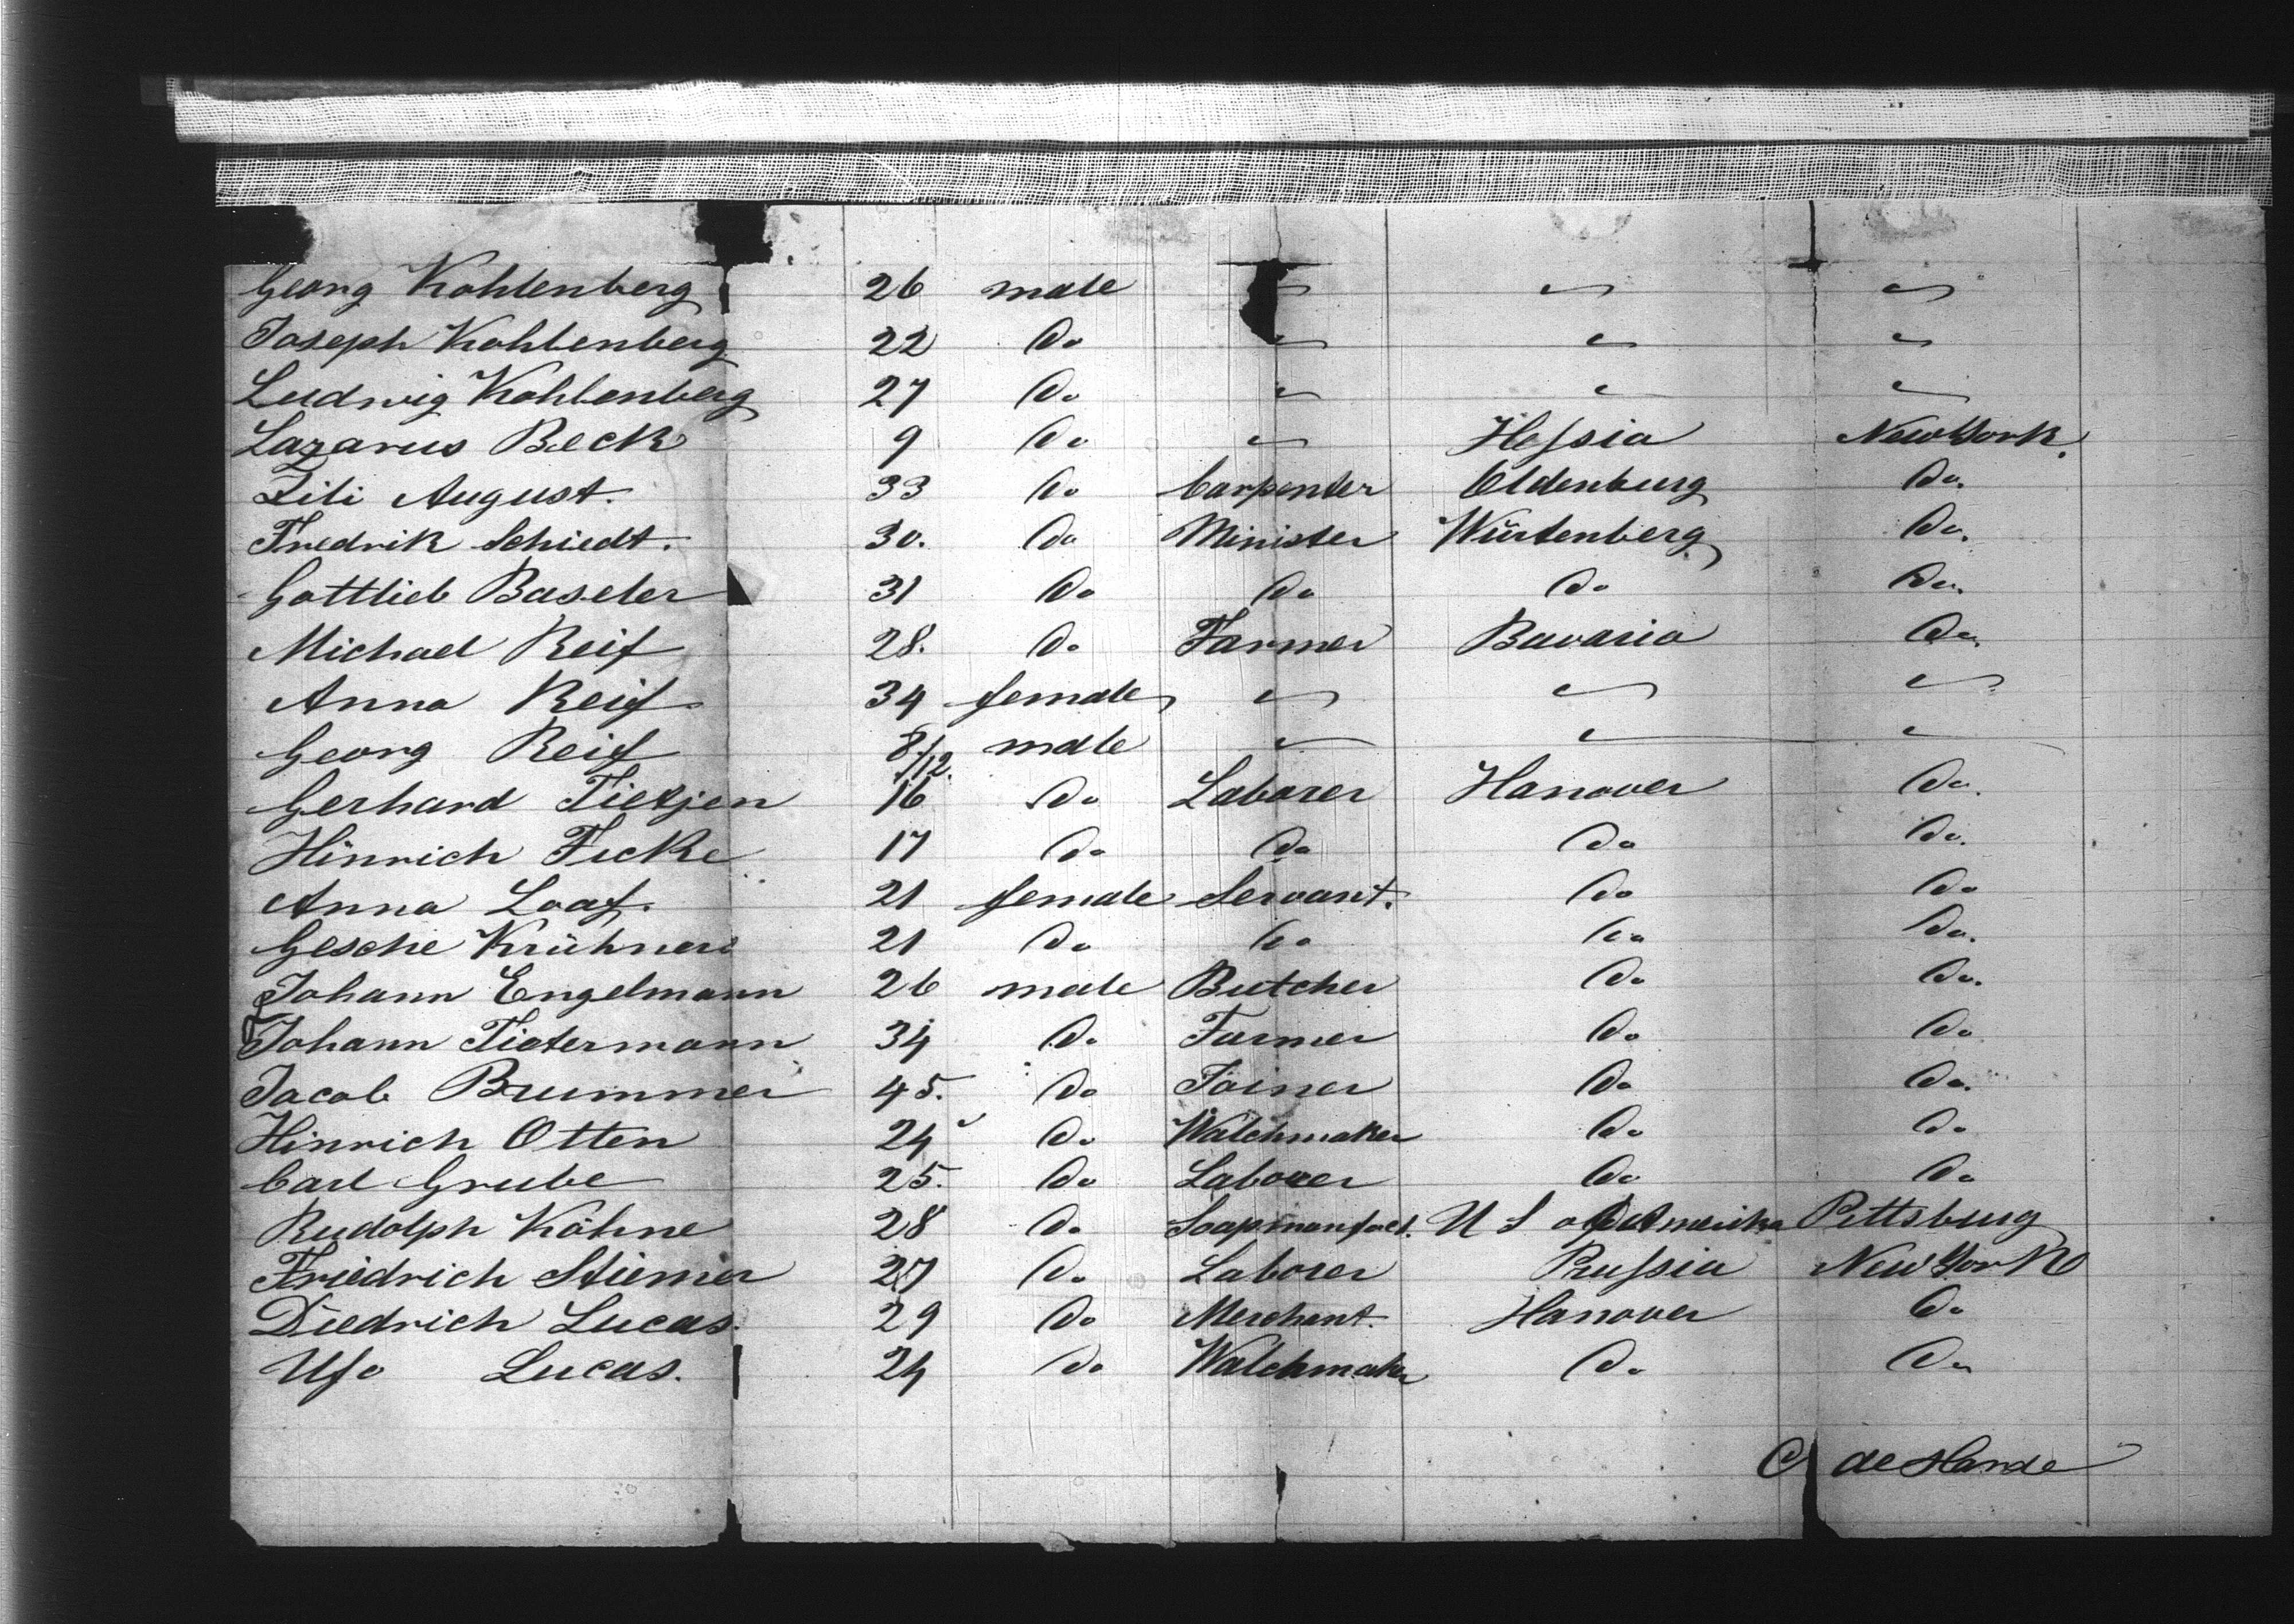 Georg Kohlenberg 26 male " " "
Joseph Kohlenberg 22 do " " "
Ludwig Kohlenberg 27 do " " "
Lazarus Beck 9 do " Hessia New York.
Zili August. 33 do Carpenter Oldenburg do.
Fredrik Schiedt. 30. do Minister Würtenberg do.
Gottlieb Baseler 31 do do do do.
Michael Reif 28. do Farmer Bavaria do.
Anna Reif 34 female " " "
Georg Reif 8/12. male " " "
Gerhard Tietjen 16 do Laborer Hanover do.
Hinrich Ficke 17 do do do do.
Anna Loaf. 21 female Servant. do do
Gesche 21 do do do do.
Johann Engelmann 26 male Butcher do do.
Johann Tietermann 34 do Farmer do do
Jacob Brummer 45. do Joiner do do.
Hinrich Otten 24 do Watchmaker do do
Carl Grube 25. do Laborer do do
Rudolph Köhne 28 do Soapmanfact. U S of America Pittsburg
Friedrich Stiemer 27 do Laborer Prussia New York
Diedrich Lucas. 29 do Merchant. Hanover do
Ufo Lucas. 24 do Watchmaker do do
C de Harde